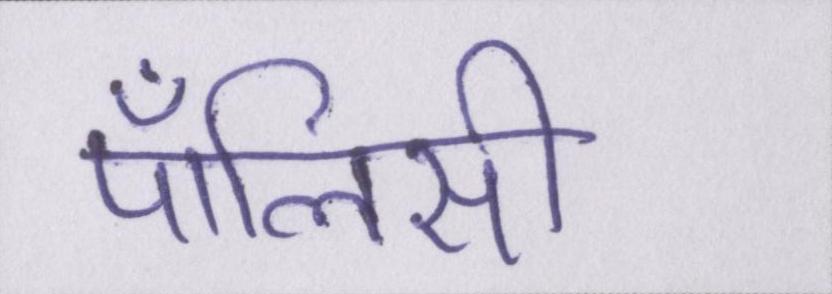 पाँलिसी